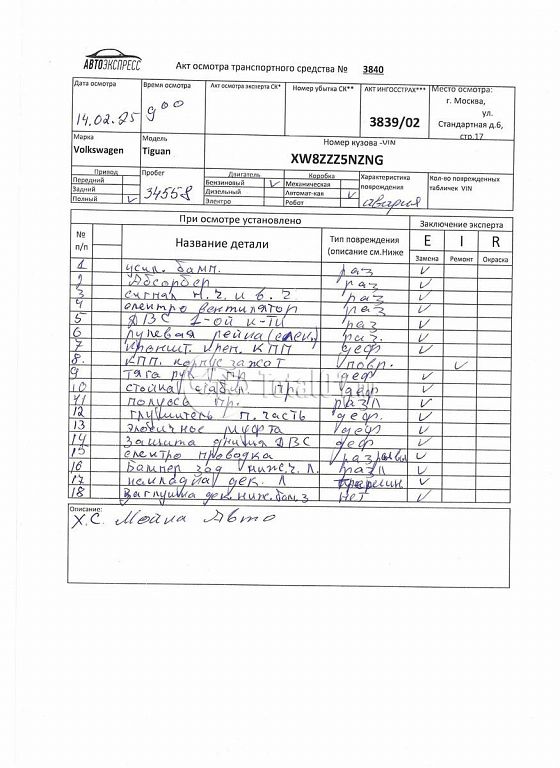 АВТОЭКСПРЕСС
Акт осмотра транспортного средства № 3840
Дата осмотра
14.02.25
Время осмотра
9 00
Акт осмотра эксперта СК*
Номер убытка СК**
АКТ ИНГОССТРАХ***
3839/02
Место осмотра:
г. Москва,
ул.
Стандартная д.6,
стр.17
Марка
Volkswagen
Модель
Tiguan
Номер кузова -VIN
XW8ZZZ5NZNG
Привод
Передний
Задний
Полный V
Пробег
34558
Двигатель
Бензиновый V
Дизельный
Электро
Коробка
Механическая
Автомат-кая V
Робот
Характеристика
повреждения
авария
Кол-во поврежденных
табличек VIN
При осмотре установлено
Заключение эксперта
№
п/п
Название детали
Тип повреждения
(описание см.Ниже
E I R
Замена Ремонт Окраска
1 усил. бамп. раз V
2 Абсорбер раз V
3 сигнал н.ч. и в.ч раз V
4 електро вентилятор раз V
5 ДВС 1-ой к-ти раз V
6 рулевая рейка (елек.) раз. V
7 кроншт. креп. КПП деф V
8. КПП. корпус зажат повр. V
9 тяга рул пр деф V
10 стойка стабил. пр деф V
11 полуось пр. разл V
12 глушитель п. часть деф. V
13 муфта деф V
14 защита днища ДВС деф V
15 електро проводка разрывы V
16 Бампер зад ниж.ч. Л. разл V
17 накладка дек. Л V
18 заглушка дек. ниж. бам. з нет V
Описание:
Х.С. Мойка Авто